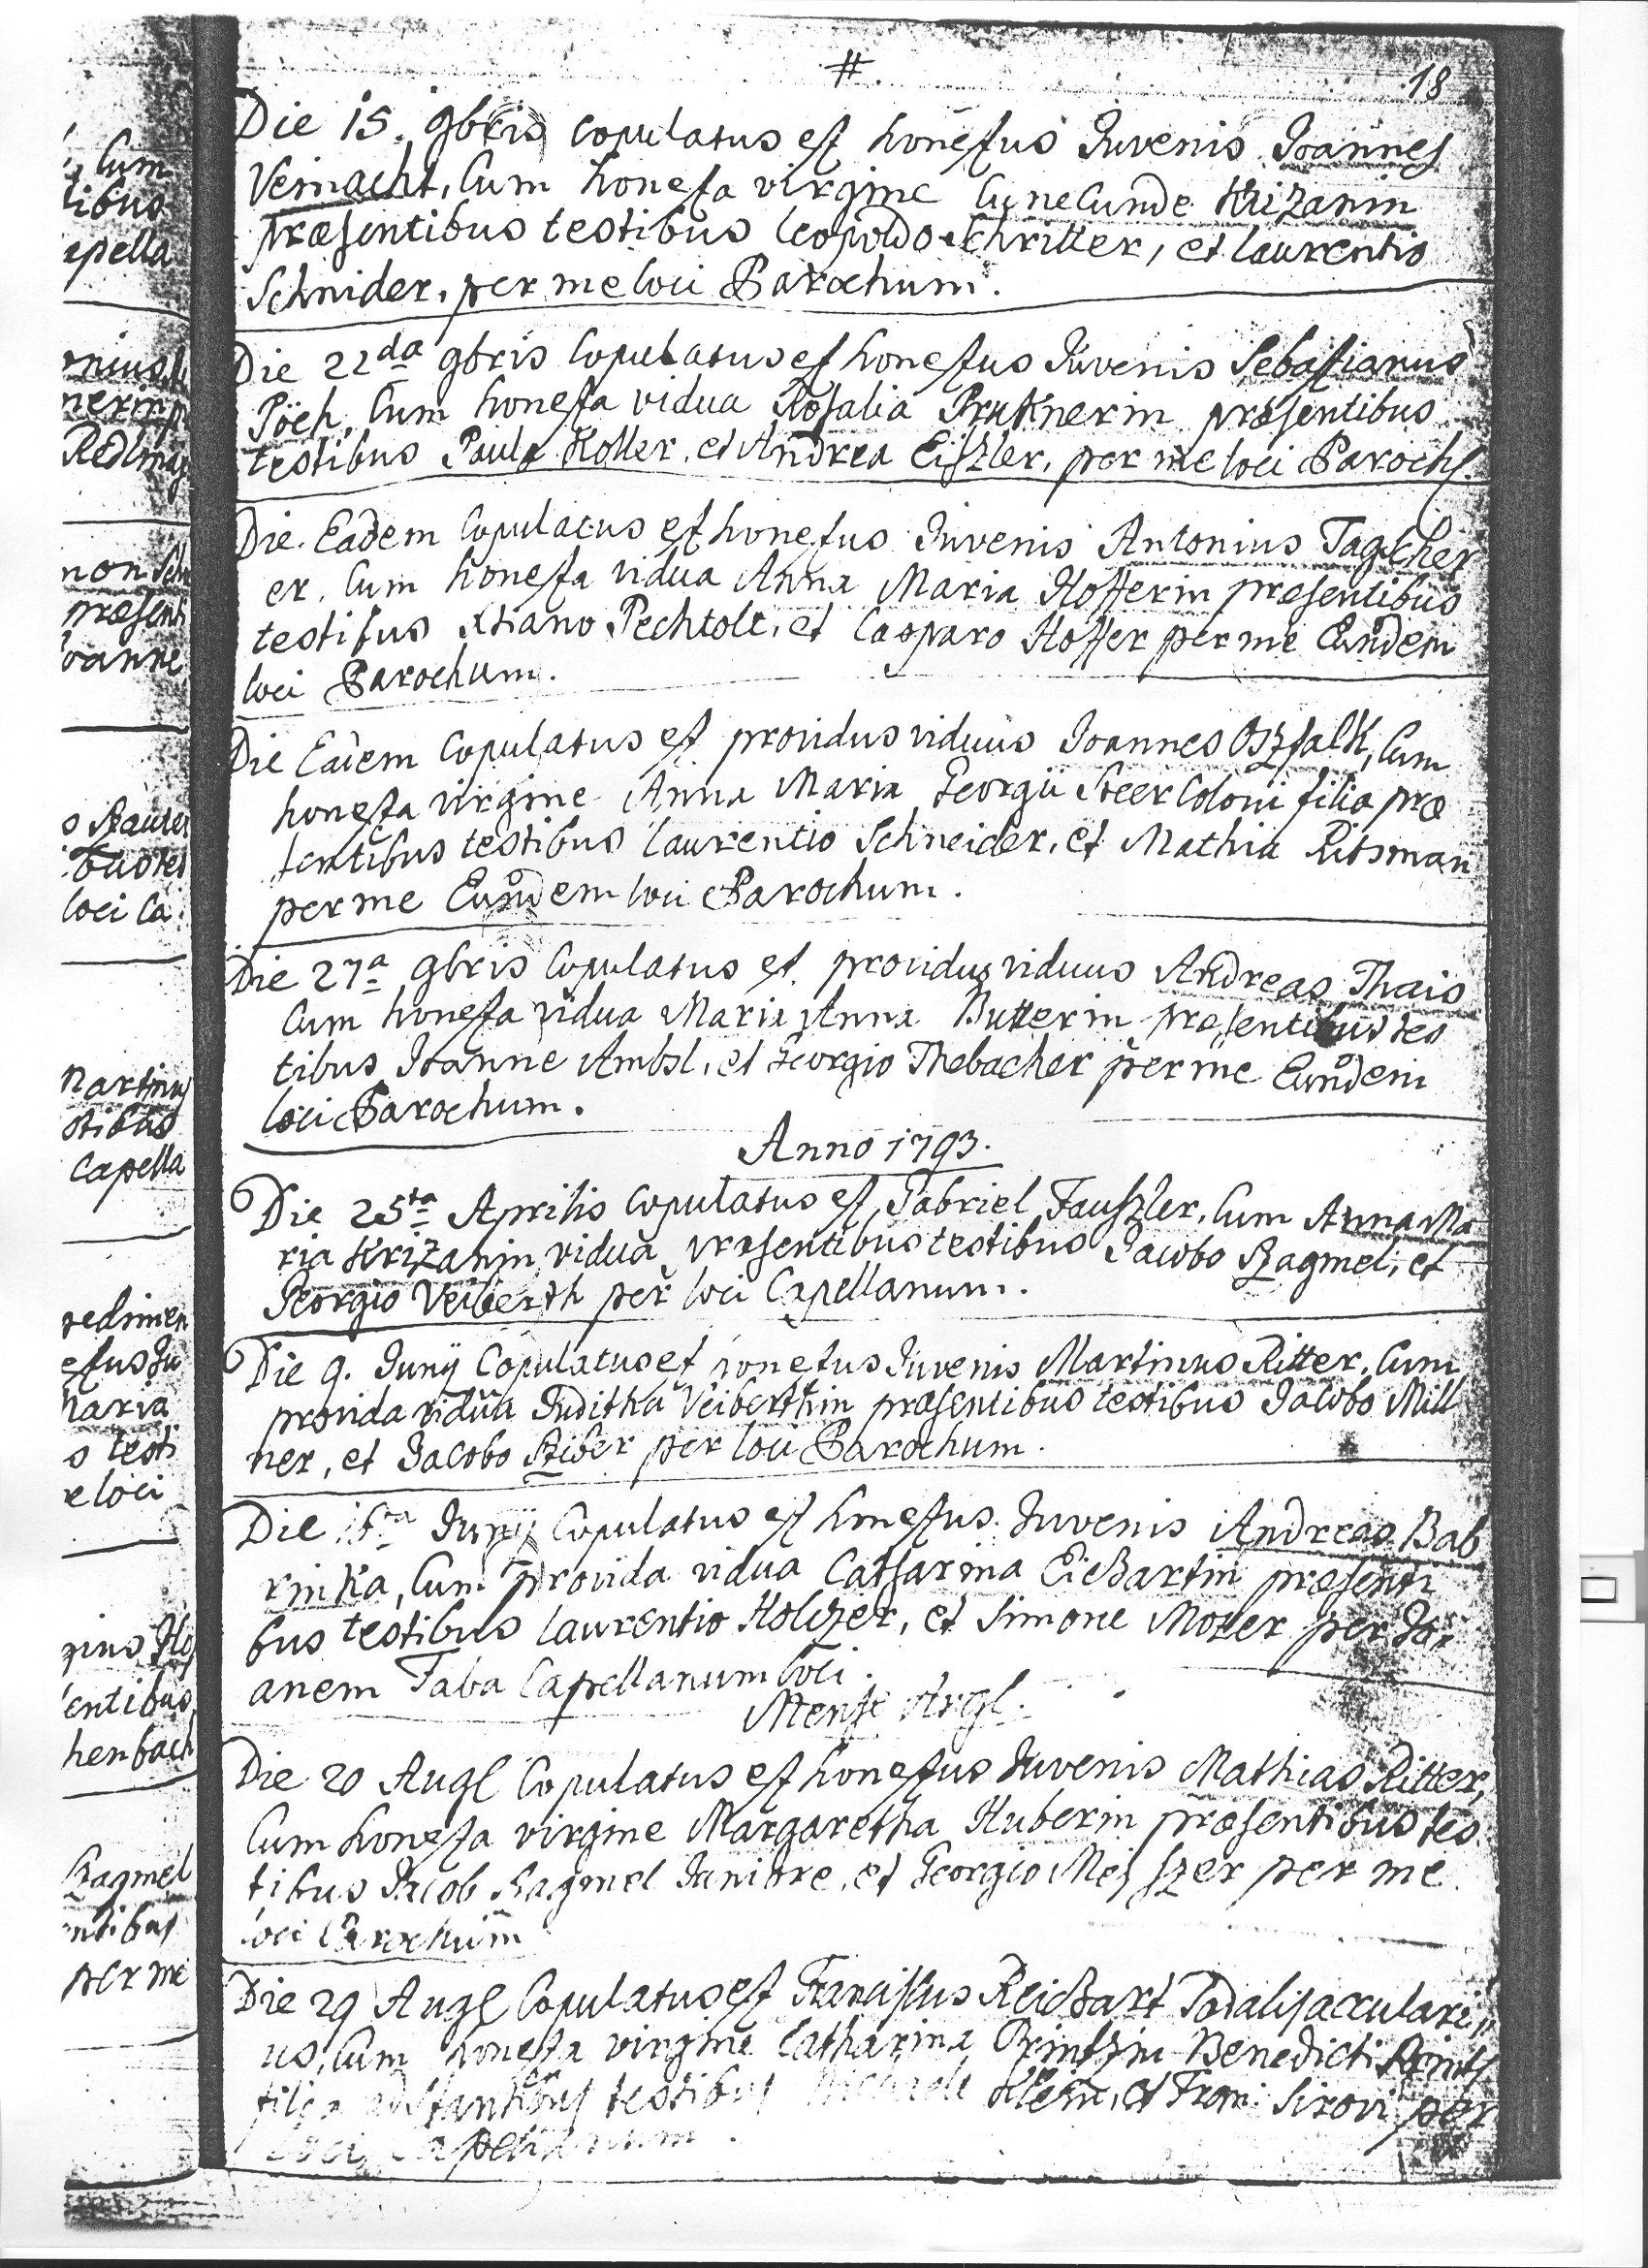 #
18
Die 15. 9bris copulatus est honestus Juvenis Joannes
Veinacht, Cum honesta virgine Cunecunde Krizanin
præsentibus testibus Leopoldo Schritter, et Laurentio
Schnider, per me loci Parochum.
Die 22da 9bris Copulatus est honestus Juvenis Sebastianus
Pöch, Cum honesta vidua Rosalia Pruknerin præsentibus
testibus Paulo Koller, et Andrea Eiszler, per me loci Parochs.
Die Eadem Copulatus est honestus Juvenis Antonius Tagscher
er, Cum honesta vidua Anna Maria Hofferin præsentibus
testibus Xtiano Pechtolt, et Casparo Hoffer per me Eundem
loci Parochum.
Die Eadem Copulatus est providus viduus Joannes Oszfalk, Cum
honesta virgine Anna Maria Georgii Steer Coloni filia præ
sentibus testibus Laurentio Schneider, et Mathia Ritsman
per me Eundem loci Parochum.
Die 27a 9bris Copulatus est providus viduus Andreas Thais
Cum honesta vidua Maria Anna Butterin præsentibus tes
tibus Joanne Ambsl, et Georgio Thebacher per me Eundem
loci Parochum.
Anno 1793.
Die 25ta Aprilis Copulatus est Gabriel Fauszler, Cum Anna Ma
ria Krizanin vidua præsentibus testibus Jacobo Szagmel, et
Georgio Veiberth per loci Capellanum.
Die 9. Junÿ Copulatus est honestus Juvenis Martinus Ritter, Cum
provida vidua Juditha Veiberthin præsentibus testibus Jacobo Mill
ner, et Jacobo Stiber per loci Parochum.
Die Junÿ Copulatus est honestus Juvenis Andreas Bab
rinka, Cum provida vidua Catharina Eichartin præsenti
bus testibus Laurentio Holczer, et Simone Mozer per Jo-
anem Faba Capellanum loci.
Mense Augl.
Die 20 Augl Copulatus est honestus Juvenis Mathias Ritter,
Cum honesta virgine Margaretha Huberin præsentibus tes
tibus Jacob Szagmel Juniore, et Georgio Mejszer per me
loci Parochum
Die 29 Augl Copulatus est Franciscus Reichart Sodalis
us, Cum honesta virgine Catharina Printzin Benedicti Printz
filia adstantibus testibus Michaele Klein, et Franc. Sirovi per
loci Capellanum.